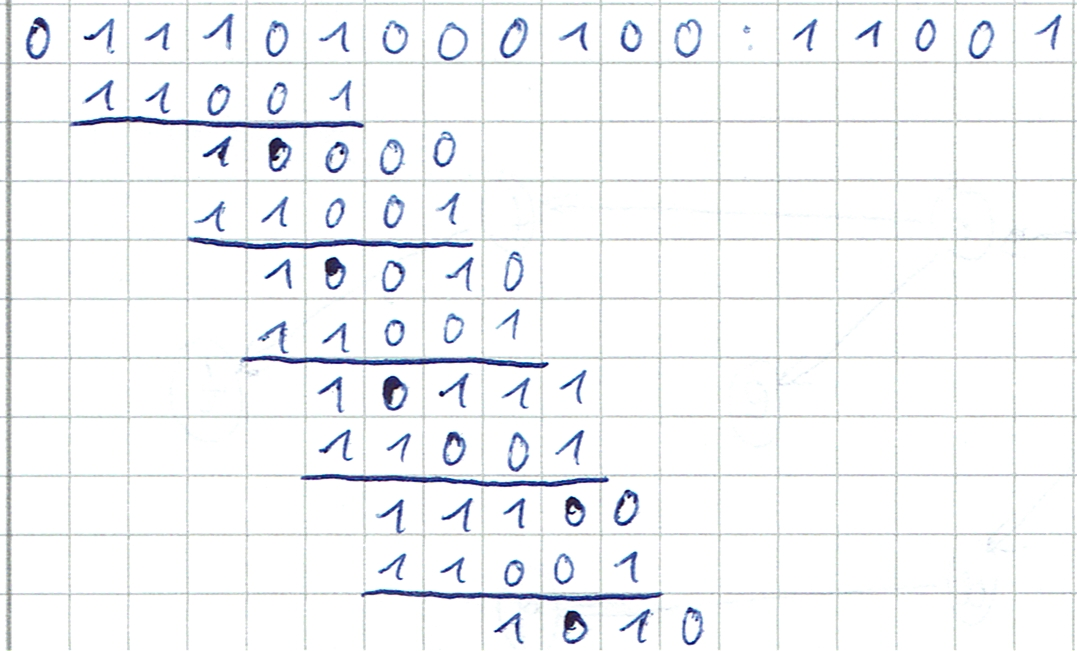 0 1 1 1 0 1 0 0 0 1 0 0 : 1 1 0 0 1
1 1 0 0 1
1 0 0 0 0
1 1 0 0 1
1 0 0 1 0
1 1 0 0 1
1 0 1 1 1
1 1 0 0 1
1 1 1 0 0
1 1 0 0 1
1 0 1 0